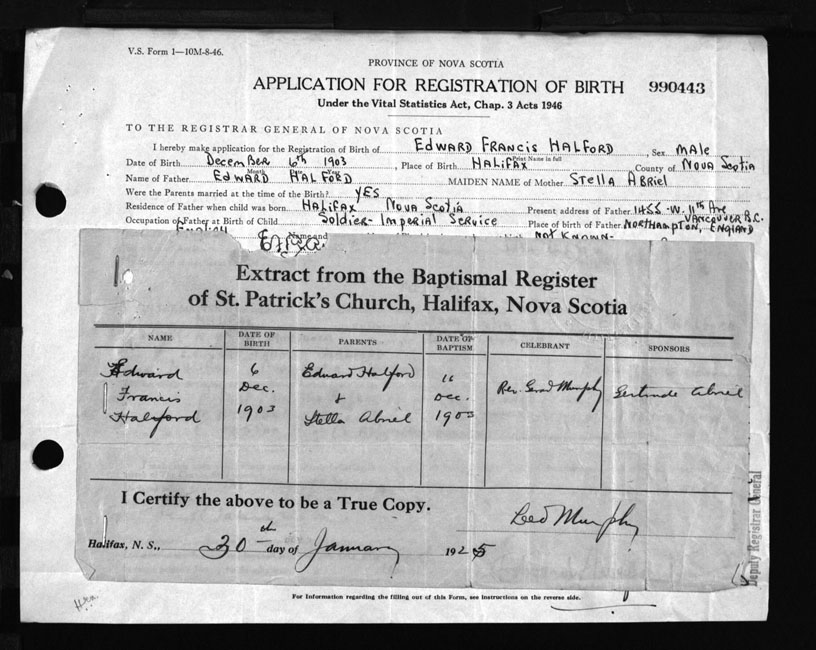 V.S. Form 1—10M-8-46.
PROVINCE OF NOVA SCOTIA
APPLICATION FOR REGISTRATION OF BIRTH 990443
Under the Vital Statistics Act, Chap. 3 Acts 1946
TO THE REGISTRAR GENERAL OF NOVA SCOTIA
I hereby make application for the Registration of Birth of EDWARD FRANCIS HALFORD, Sex MALE
Print Name in full
Date of Birth DECEMBER 6th 1903, Place of Birth HALIFAX County of NOVA SCOTIA
Month Year
Name of Father EDWARD HALFORD MAIDEN NAME of Mother STELLA ABRIEL
Were the Parents married at the time of the Birth? YES
Residence of Father when child was born HALIFAX NOVA SCOTIA Present address of Father 1455-W. 11th Ave VANCOUVER B.C.
Occupation of Father at Birth of Child SOLDIER- IMPERIAL SERVICE Place of birth of Father NORTHAMPTON, ENGLAND
English Name and NOT KNOWN-
Extract from the Baptismal Register
of St. Patrick's Church, Halifax, Nova Scotia
NAME DATE OF BIRTH PARENTS DATE OF BAPTISM CELEBRANT SPONSORS
Edward 6 Edward Halford 11
Francis Dec. & Dec. Rev. Gerad Murphy Gertrude Abriel
Halford 1903 Stella Abriel 1903
I Certify the above to be a True Copy.
Leo Murphy
Halifax, N. S., 30th day of January 1925
Deputy Registrar General
For Information regarding the filling out of this Form, see instructions on the reverse side.